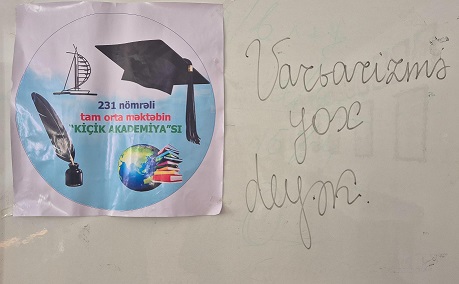 231 nömrəli
tam orta məktəbin
"KİÇİK AKADEMİYA"SI
Varvarizmə
yox
deyək.